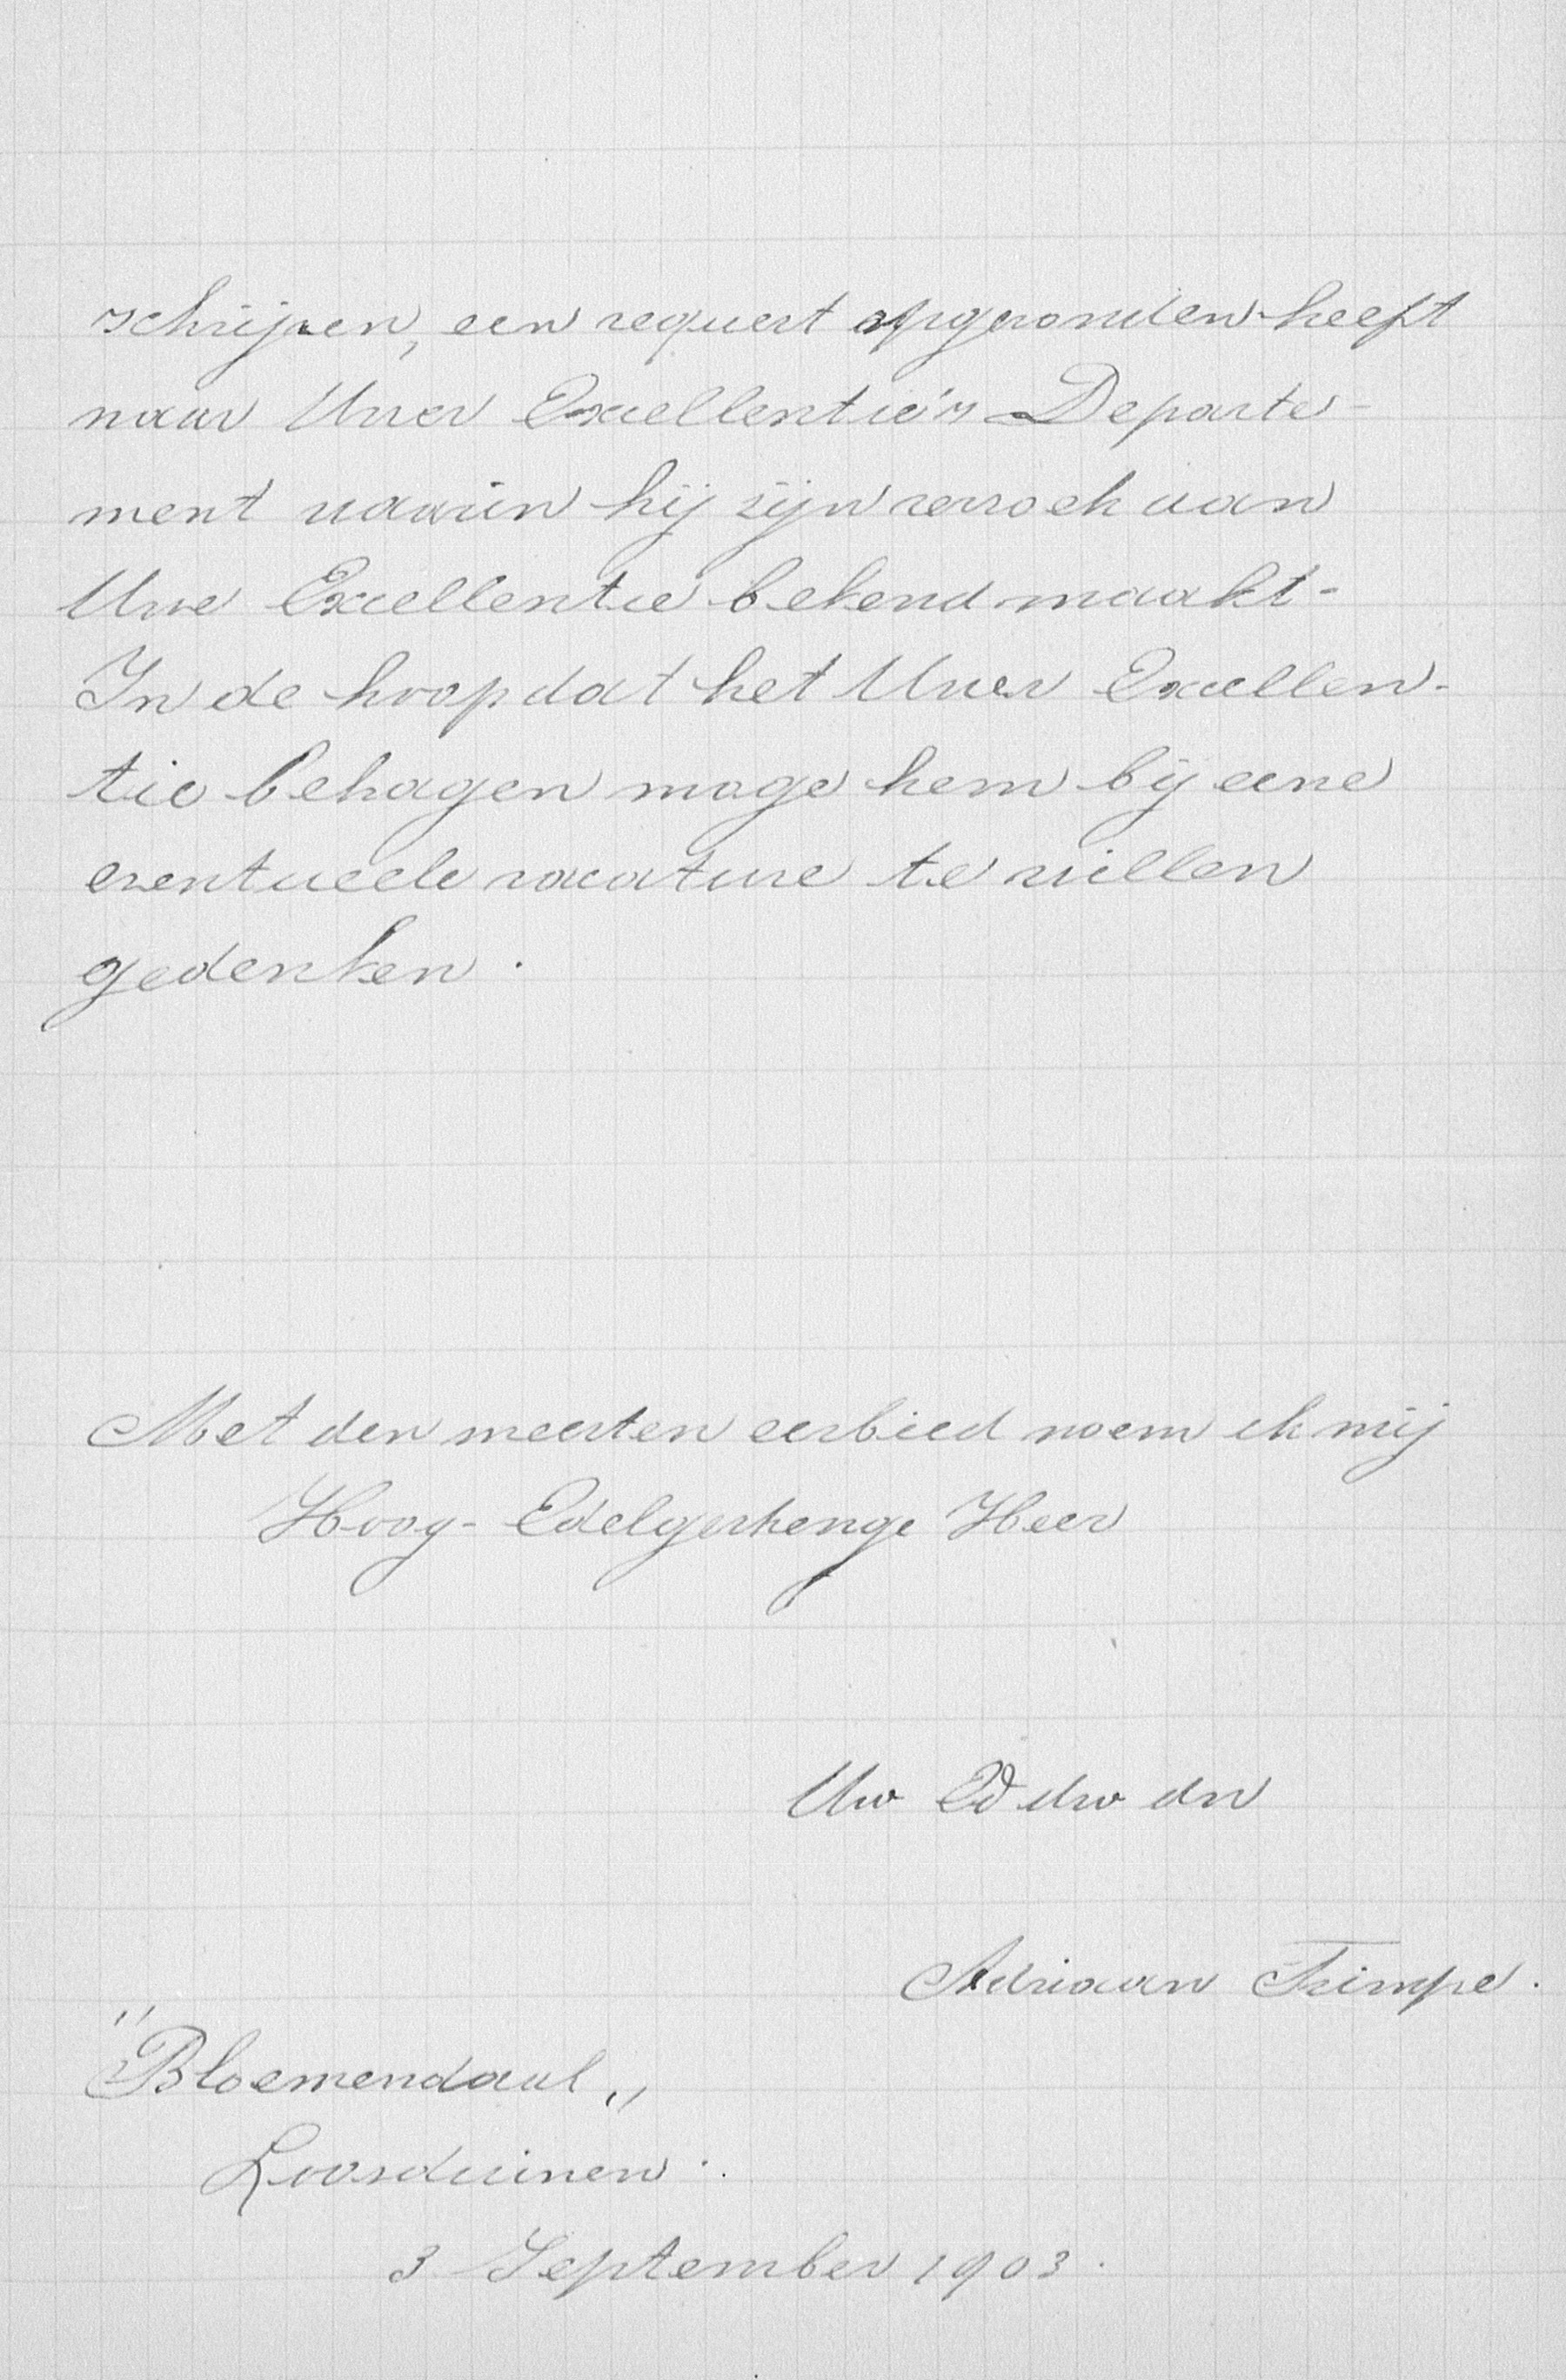 schrijven, een request opgezonden heeft
naar Uwer Excellentie's Departe-
ment waarin hij zijn verzoek aan
Uwe Excellentie bekend maakt -
In de hoop dat het Uwer Excellen-
tie behagen moge hem bij eene
eventueele vacature te willen
gedenken.
Met den meesten eerbied noem ik mij
Hoog-Edelgestrenge Heer
Uw Ed dw dn
Adriaan Trimpe.
"Bloemendaal"
Loosduinen.
3 September 1903.